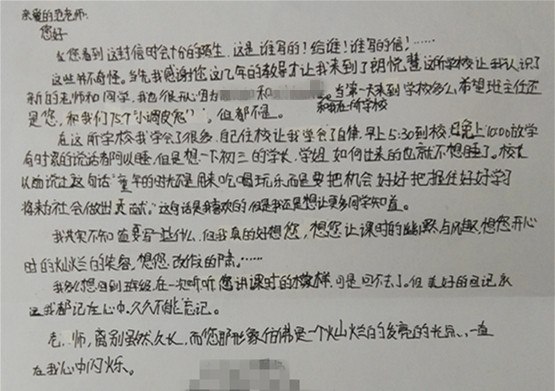 亲爱的范老师:
您好
当您看到这封信时会十分的陌生,这是谁写的!给谁!谁写的信!……
这些并不奇怪。首先我感谢您这几年的教导才让我来到了朗悦慧这所学校让我认识了
新的老师和同学,我也很开心因为 和 。当第一天来到学校多么希望班主任还
是您,和我们757"小调皮蛋"和我在一所学校,但都不是。
在这所学校我学会了很多,自己住校让我学会了自律,早上5:30到校,晚上10:00放学
有时累的说话都可以睡,但是想一下初三的学长,学姐,如何过来的也就不想睡了。校长
以前说过这句话"童年的时光不是用来吃喝玩乐而是要把机会好好把握住好好学习
将来为社会做出贡献。"这句话是我喜欢的但是我还是想让更多同学知道。
我其实不知道要写些什么,但我真的好想您,想您讲课时的幽默与风趣,想您开心
时的灿烂的笑容,想您改作文的 ……
我多么想回到班级,在一次听听您讲课时的模样,可是回不去了。但美好的回记永
远我都记在心中,久久不能忘记。
老师,离别虽然久长,而您那形象仿佛是一个灿烂的发亮的光点,一直
在我心中闪烁。